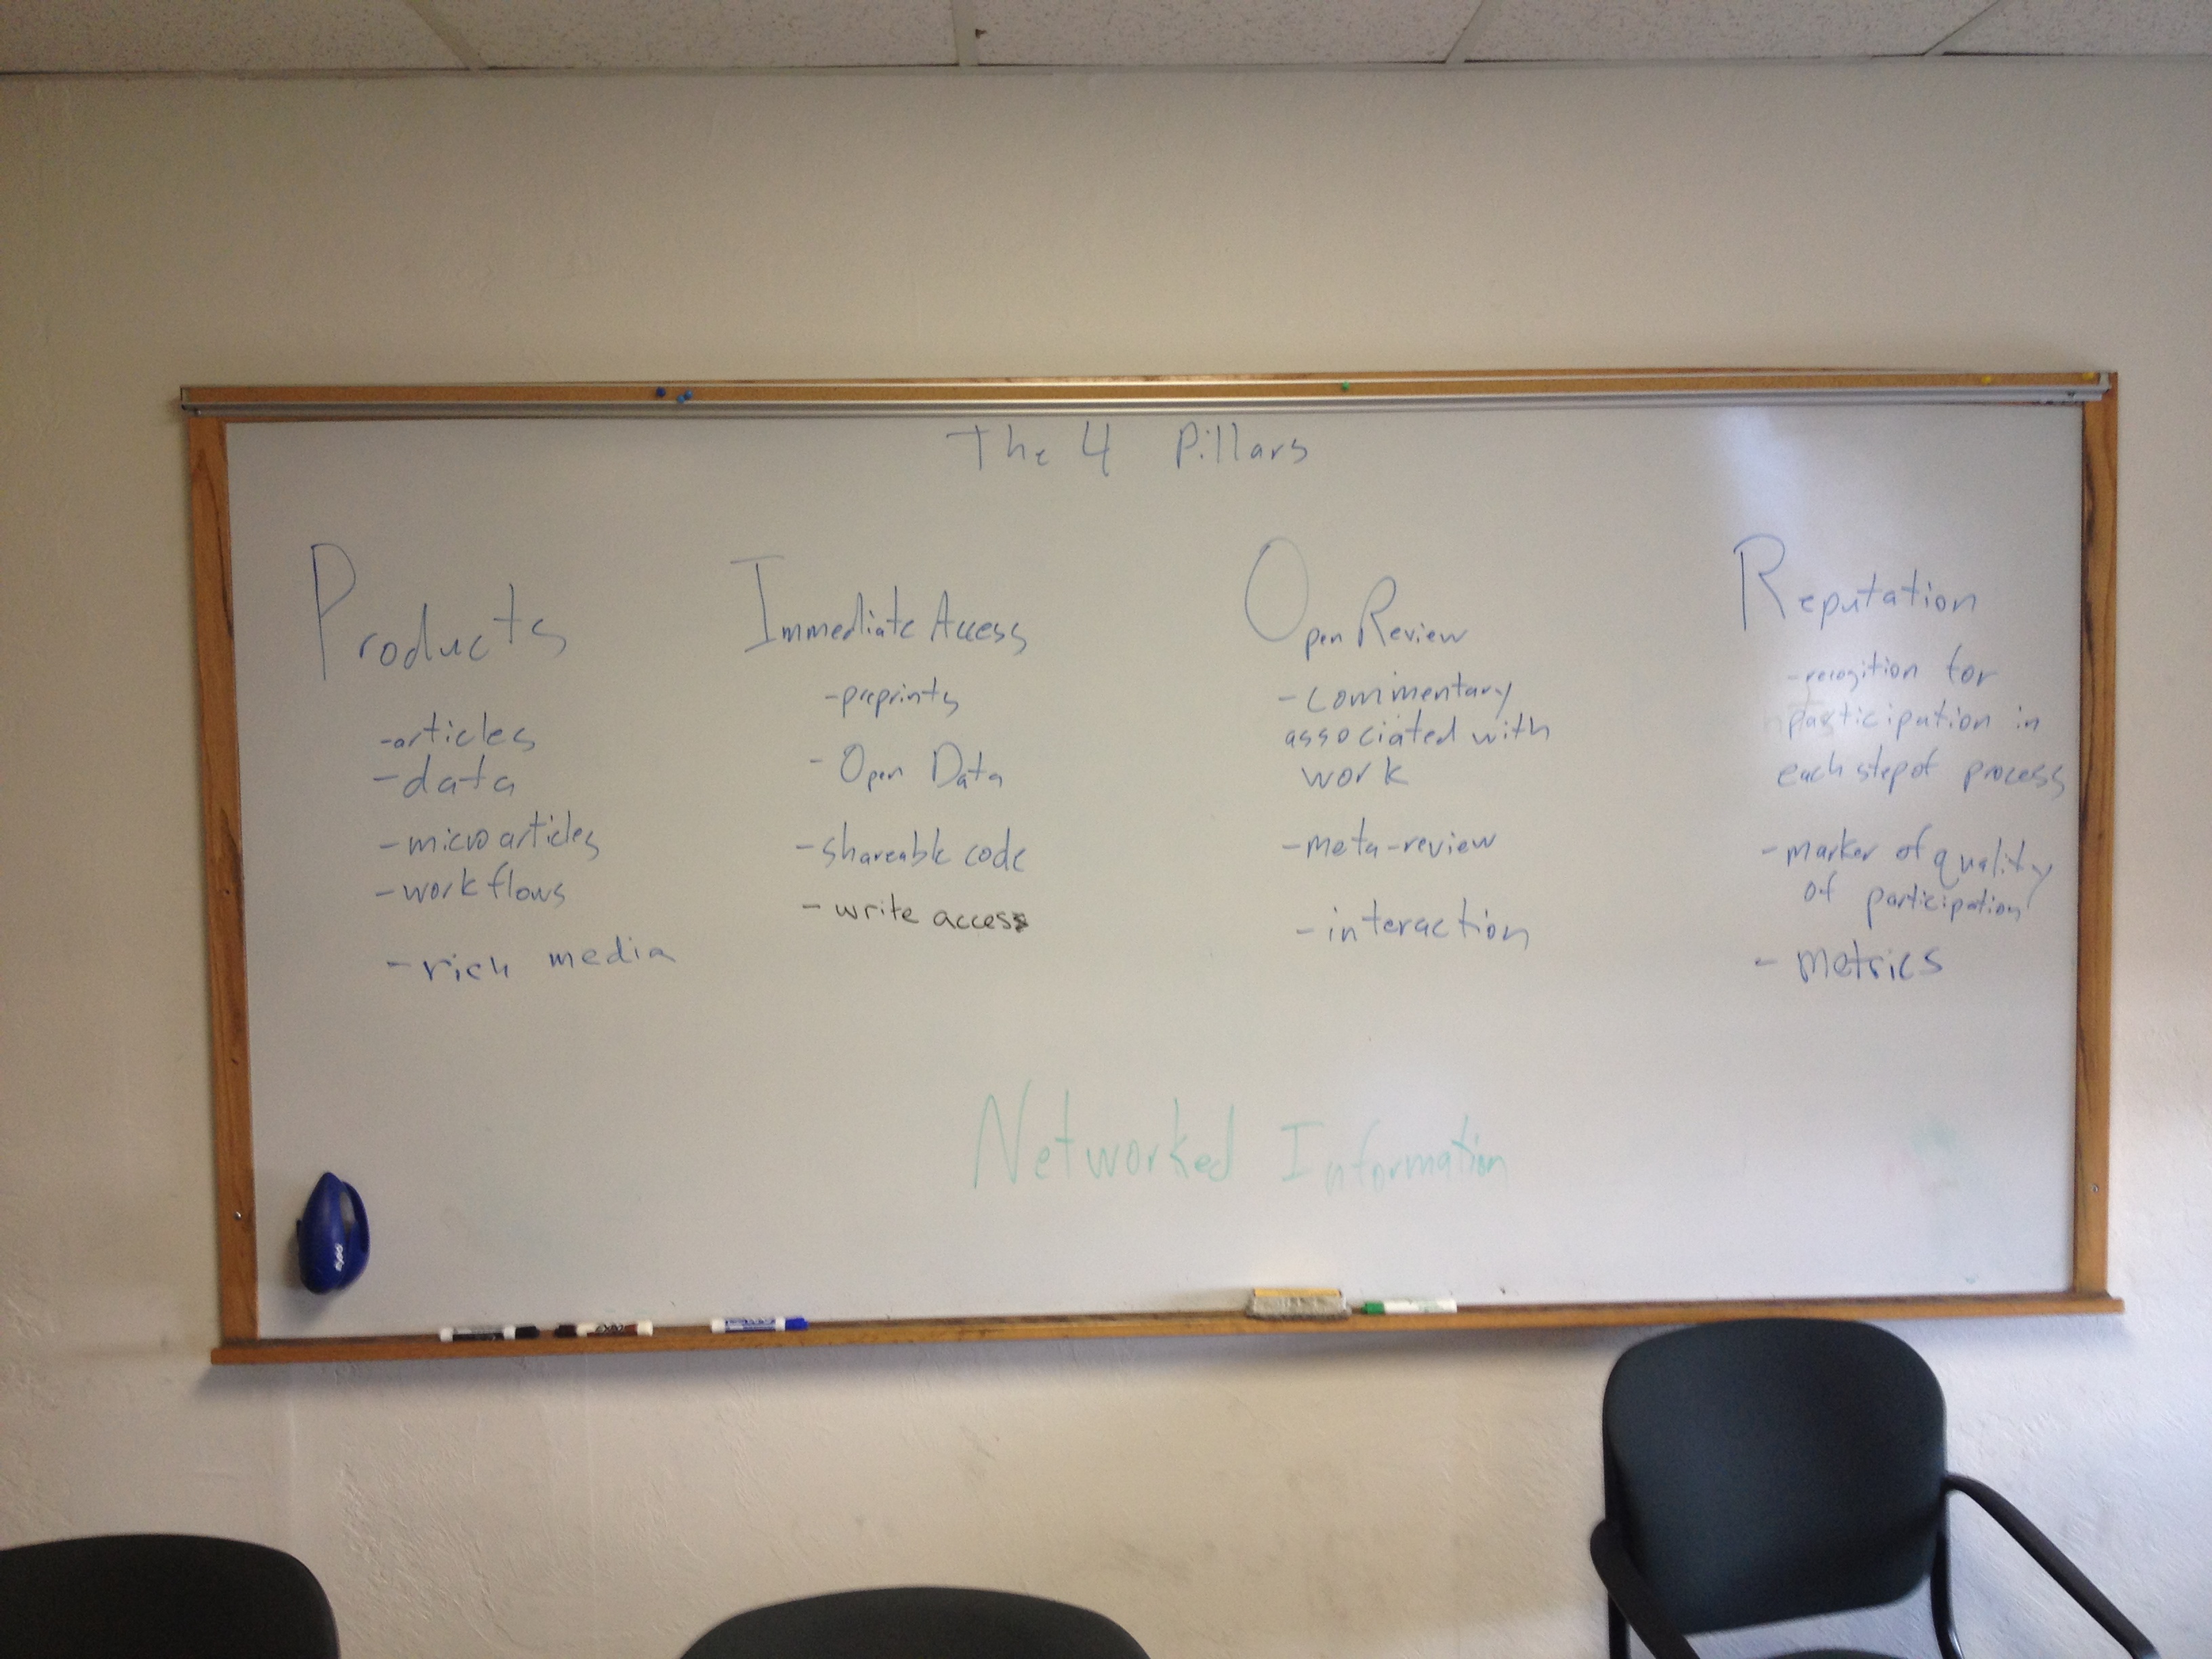 The 4 Pillars
Products
-articles
-data
-microarticles
-workflows
-rich media
Immediate Access
-preprints
- Open Data
-shareable code
- write access
Open Review
- commentary
associated with
work
-meta-review
-interaction
Reputation
-recogition for
participation in
each step of process
- marker of quality
of participation
- metrics
Networked Information
EXPO